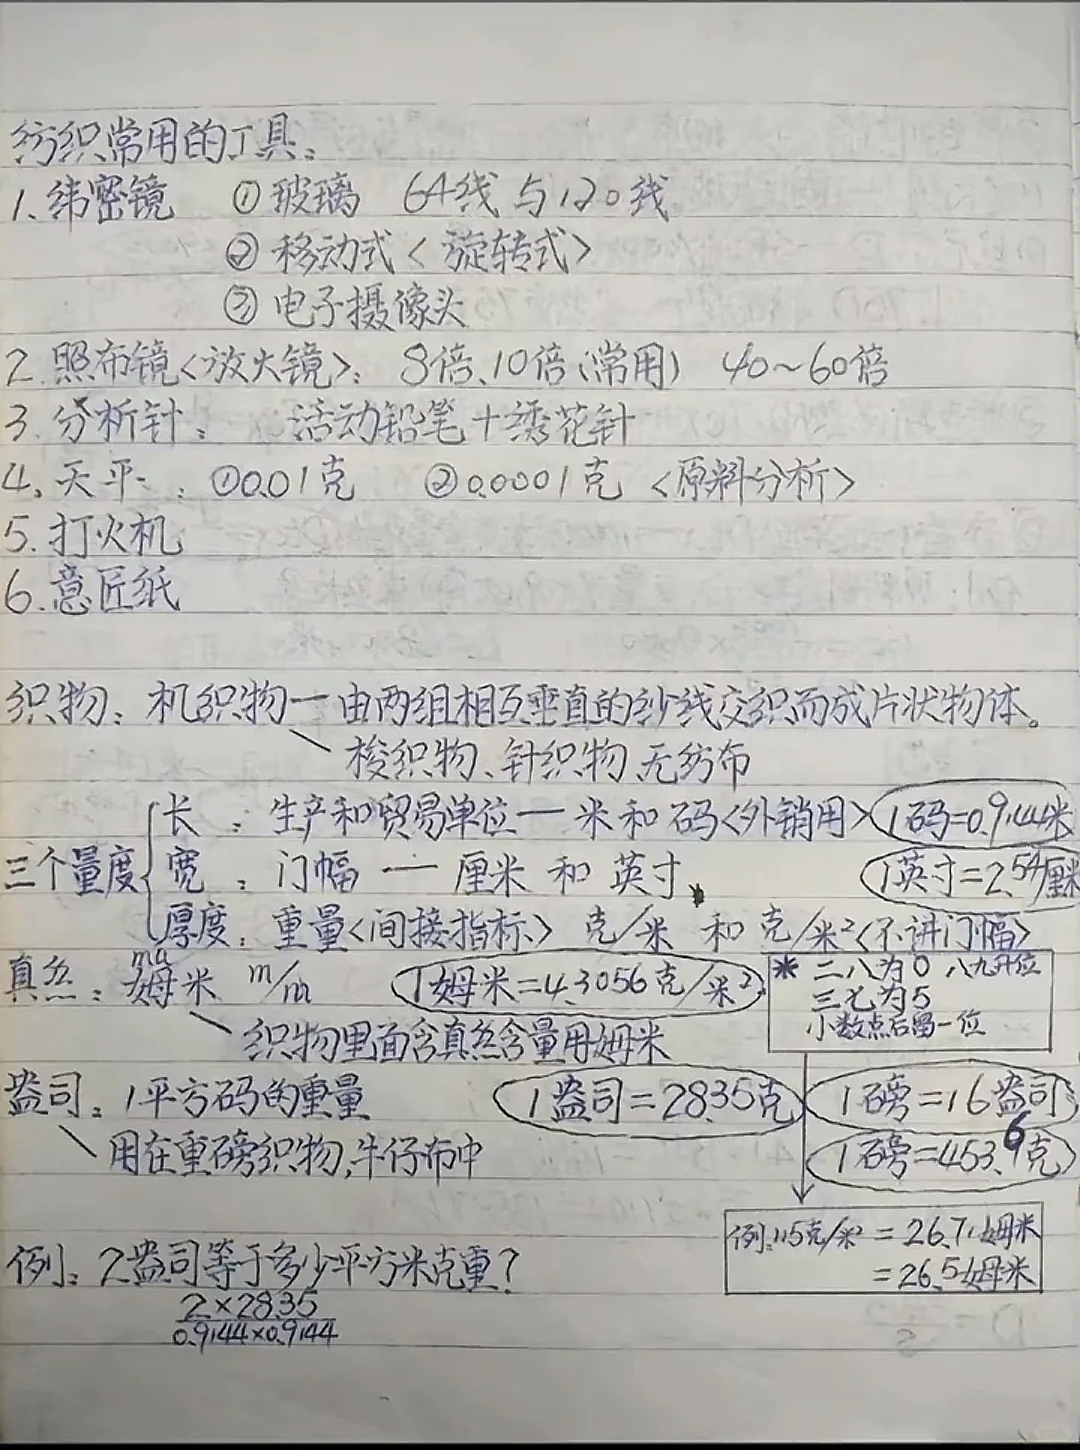 纺织常用的工具:
1、纬密镜 ①玻璃 64线与120线
②移动式<旋转式>
③电子摄像头
2.照布镜<放大镜>: 8倍、10倍(常用) 40~60倍
3.分析针: 活动铅笔+绣花针
4、天平: ①0.01克 ②0.0001克 <原料分析>
5.打火机
6.意匠纸
织物: 机织物—由两组相互垂直的纱线交织而成片状物体。
梭织物、针织物、无纺布
三个量度
长: 生产和贸易单位—米和码<外销用> 1码=0.9144米
宽: 门幅—厘米和英寸、 1英寸=2.54厘米
厚度: 重量<间接指标> 克/米 和克/米²<不讲门幅>
真丝: 姆米 m/m 1姆米=4.3056克/米²
ma
* 二八为0 八九升位
三七为5
小数点后留一位
织物里面含真丝含量用姆米
盎司: 1平方码的重量 1盎司=28.35克 1磅=16盎司
用在重磅织物,牛仔布中 1磅=453.6克
例:115克/米²=26.71姆米
=26.5姆米
例: 2盎司等于多少平方米克重?
2×28.35
0.9144×0.9144